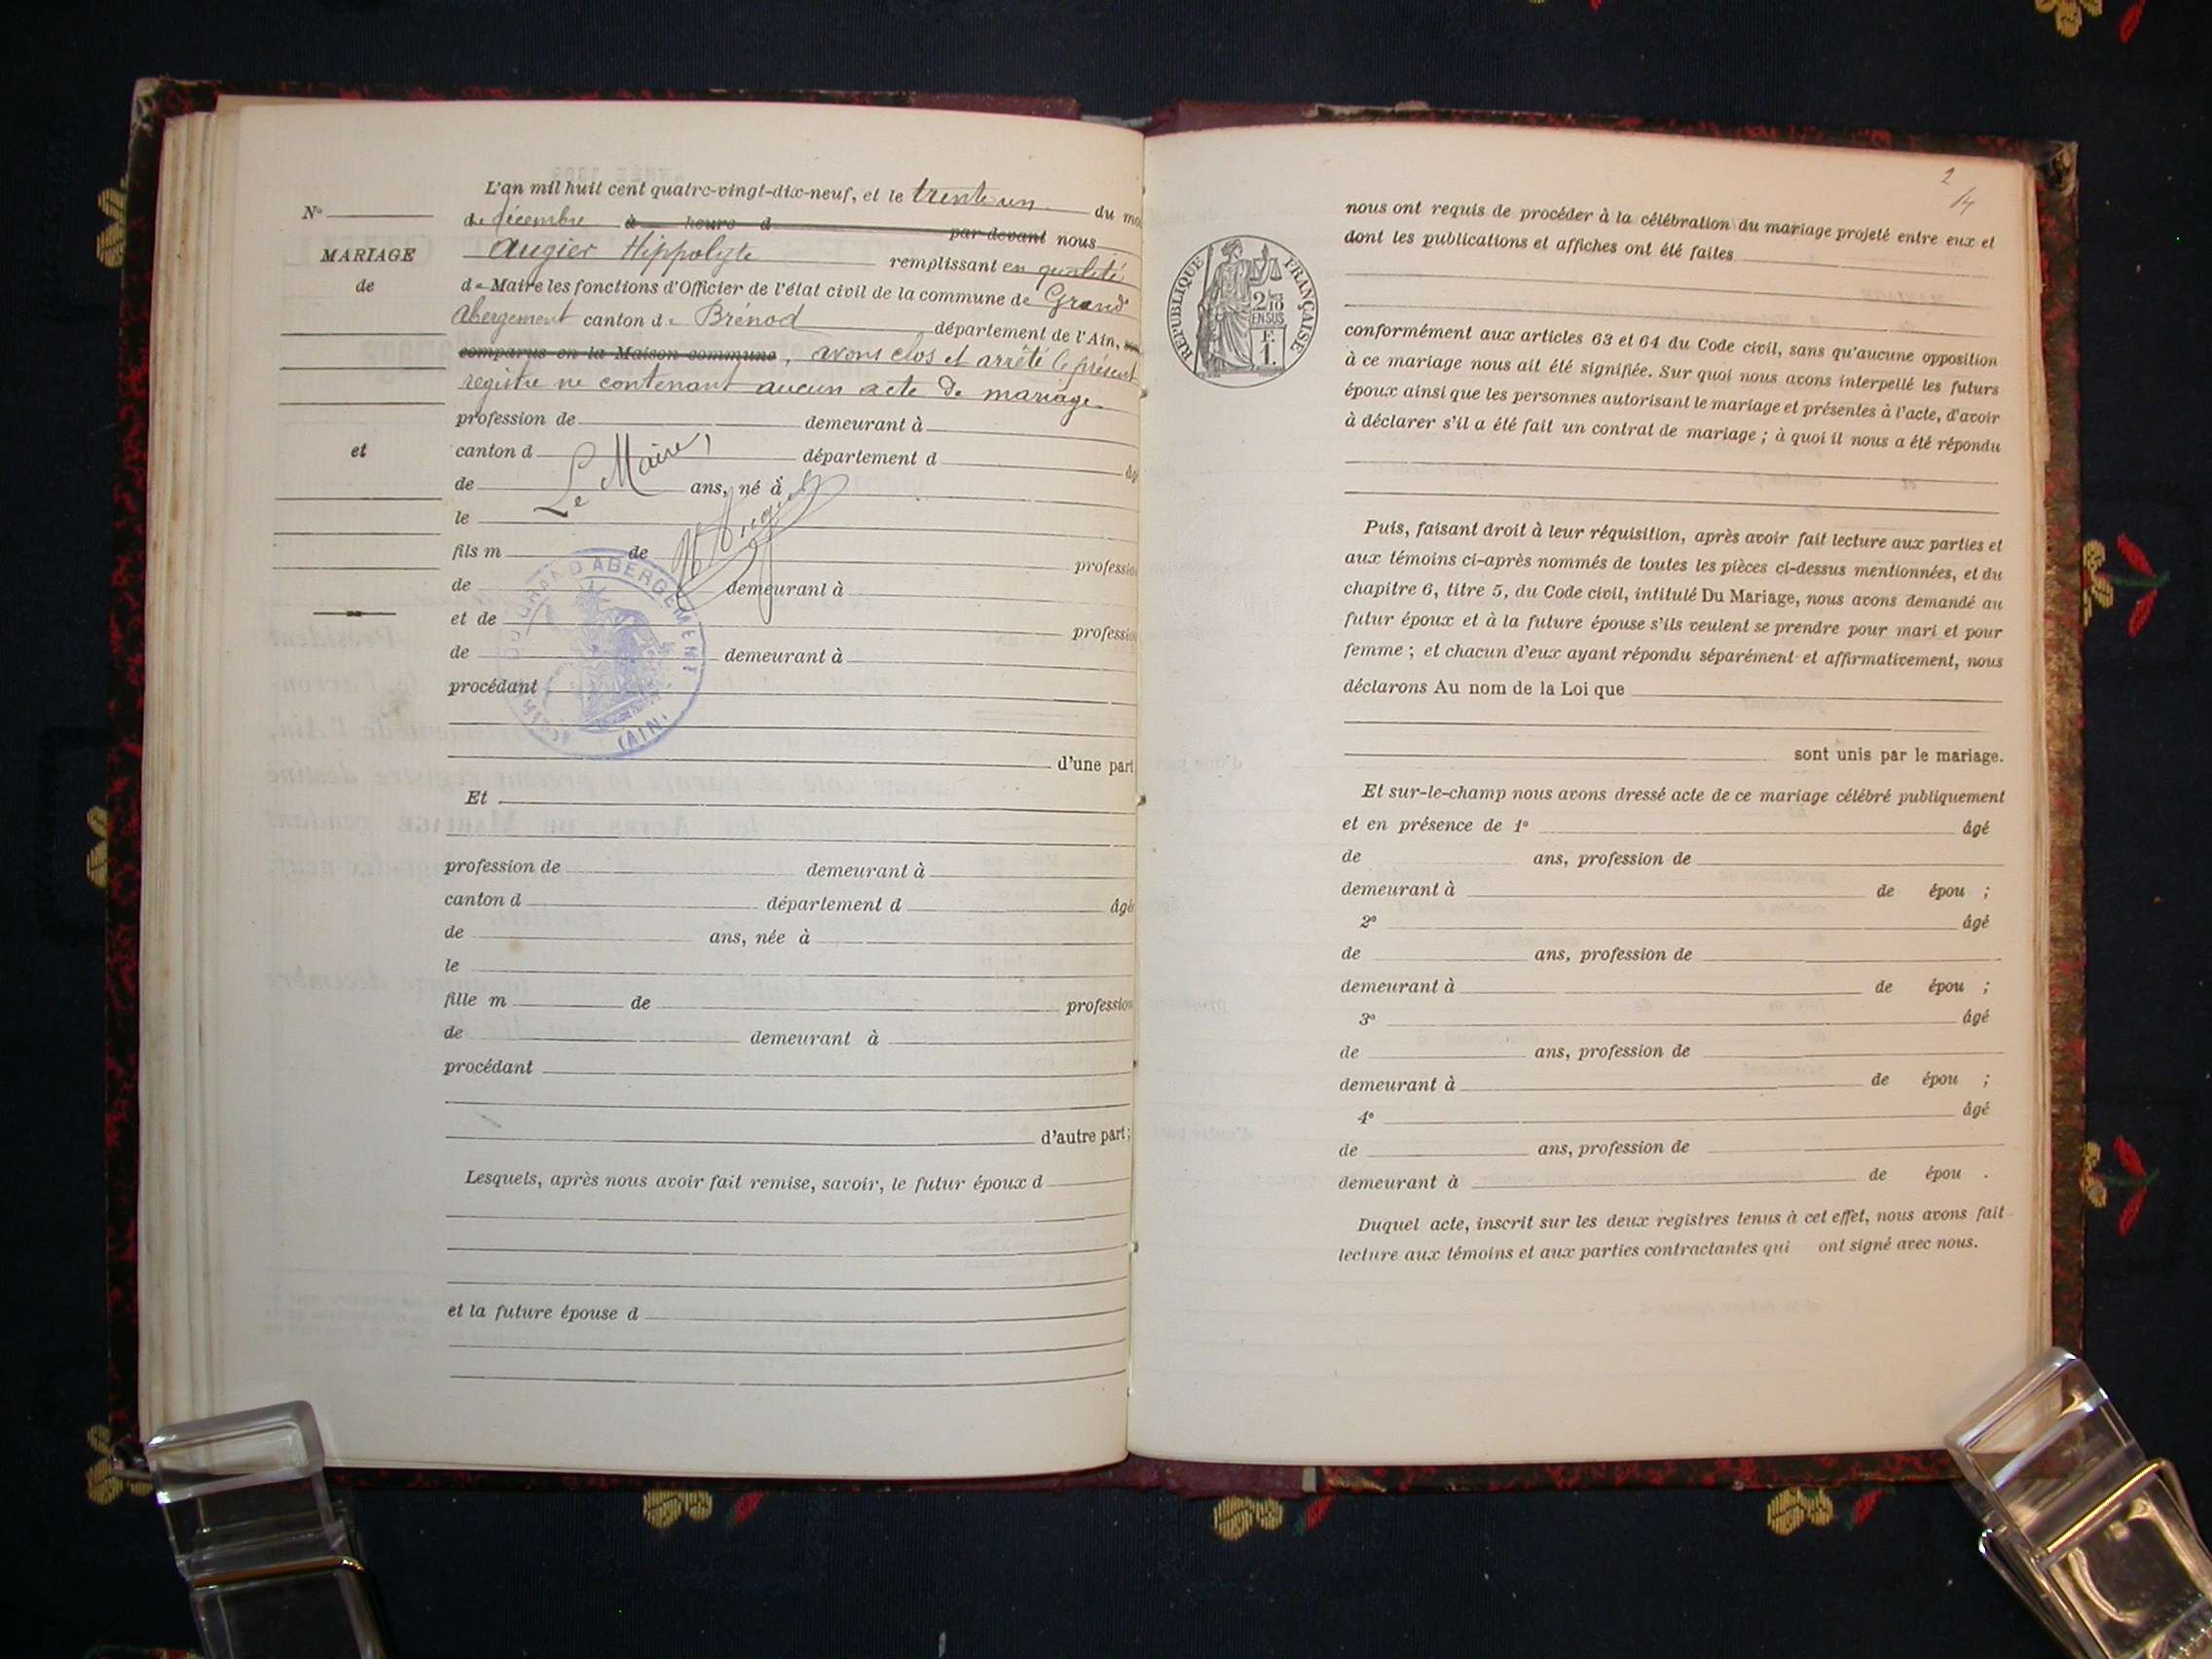 L'an mil huit cent quatre-vingt-dix-neuf, et le trente un du moi
N°
de décembre à heure d par-devant nous
MARIAGE
Augier Hippolyte remplissant en qualité
de
de Maire les fonctions d'Officier de l'état civil de la commune de Grand
Abergement canton de Brénod département de l'Ain,
comparus en la Maison commune, avons clos et arrêté le présent
registre ne contenant aucun acte de mariage
profession de demeurant à
et
canton d département d âg
Le Maire,
de ans, né à
le
fils m de profession
de demeurant à
et de profession
de demeurant à
procédant
DU GRAND ABERGEMENT
(AIN)
d'une part
Et
profession de demeurant à
canton d département d âgé
de ans, née à
le
fille m de profession
de demeurant à
procédant
d'autre part;
Lesquels, après nous avoir fait remise, savoir, le futur époux d
et la future épouse d
2
14
nous ont requis de procéder à la célébration du mariage projeté entre eux et
dont les publications et affiches ont été faites
RÉPUBLIQUE FRANÇAISE
2/10
EN SUS
1 F.
conformément aux articles 63 et 64 du Code civil, sans qu'aucune opposition
à ce mariage nous ait été signifiée. Sur quoi nous avons interpellé les futurs
époux ainsi que les personnes autorisant le mariage et présentes à l'acte, d'avoir
à déclarer s'il a été fait un contrat de mariage ; à quoi il nous a été répondu
Puis, faisant droit à leur réquisition, après avoir fait lecture aux parties et
aux témoins ci-après nommés de toutes les pièces ci-dessus mentionnées, et du
chapitre 6, titre 5, du Code civil, intitulé Du Mariage, nous avons demandé au
futur époux et à la future épouse s'ils veulent se prendre pour mari et pour
femme ; et chacun d'eux ayant répondu séparément et affirmativement, nous
déclarons Au nom de la Loi que
sont unis par le mariage.
Et sur-le-champ nous avons dressé acte de ce mariage célébré publiquement
et en présence de 1° âgé
de ans, profession de
demeurant à de épou ;
2° âgé
de ans, profession de
demeurant à de épou ;
3° âgé
de ans, profession de
demeurant à de épou ;
4° âgé
de ans, profession de
demeurant à de épou .
Duquel acte, inscrit sur les deux registres tenus à cet effet, nous avons fait
lecture aux témoins et aux parties contractantes qui ont signé avec nous.